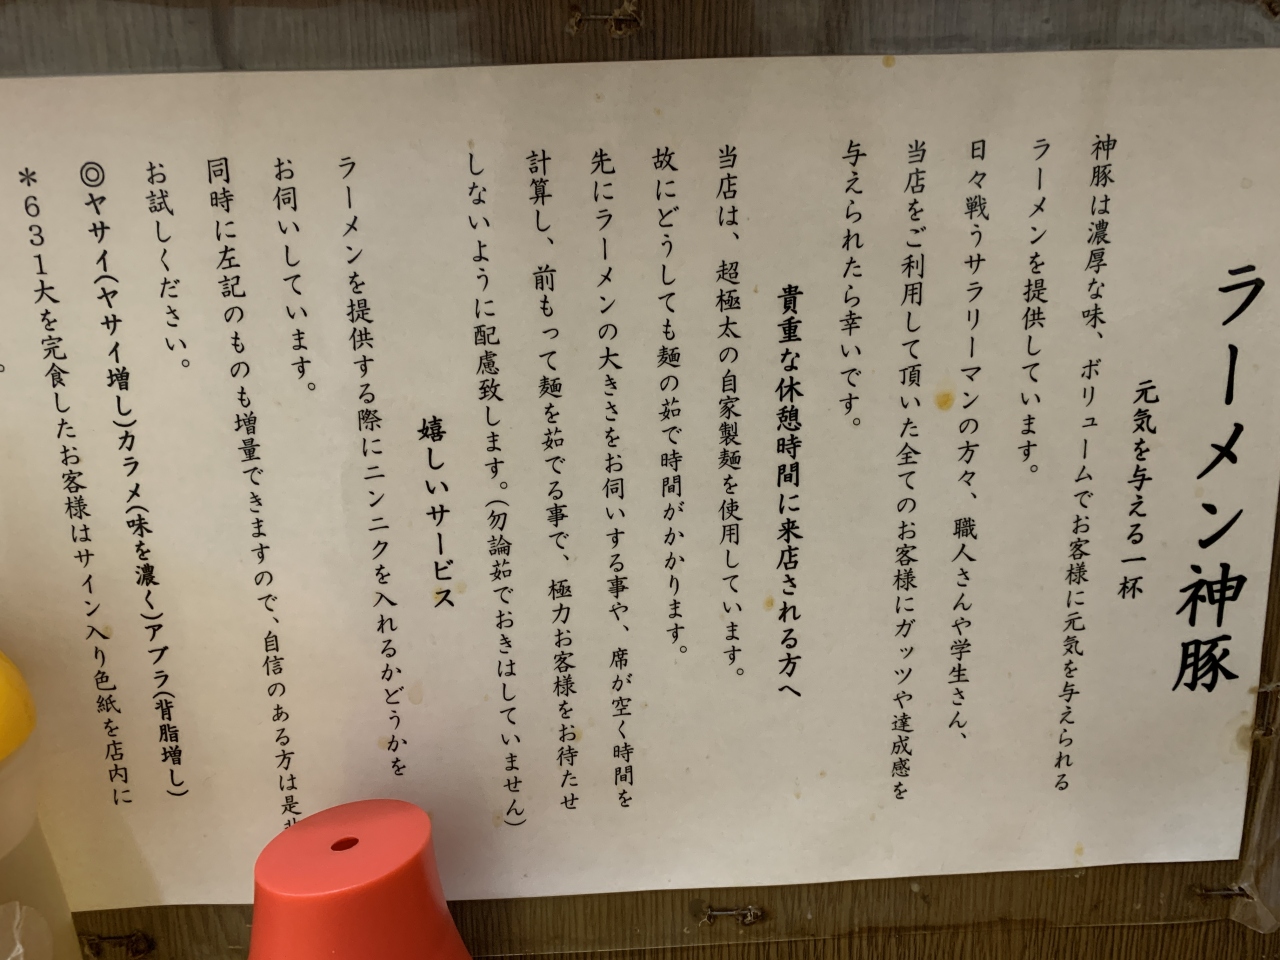 ラーメン神豚
元気を与える一杯
神豚は濃厚な味、ボリュームでお客様に元気を与えられる
ラーメンを提供しています。
日々戦うサラリーマンの方々、職人さんや学生さん、
当店をご利用して頂いた全てのお客様にガッツや達成感を
与えられたら幸いです。
貴重な休憩時間に来店される方へ
当店は、超極太の自家製麺を使用しています。
故にどうしても麺の茹で時間がかかります。
先にラーメンの大きさをお伺いする事や、席が空く時間を
計算し、前もって麺を茹でる事で、極力お客様をお待たせ
しないように配慮致します。(勿論茹でおきはしていません)
嬉しいサービス
ラーメンを提供する際にニンニクを入れるかどうかを
お伺いしています。
同時に左記のものも増量できますので、自信のある方は是
お試しください。
◎ヤサイ(ヤサイ増し)カラメ(味を濃く)アブラ(背脂増し)
＊631大を完食したお客様はサイン入り色紙を店内に
。